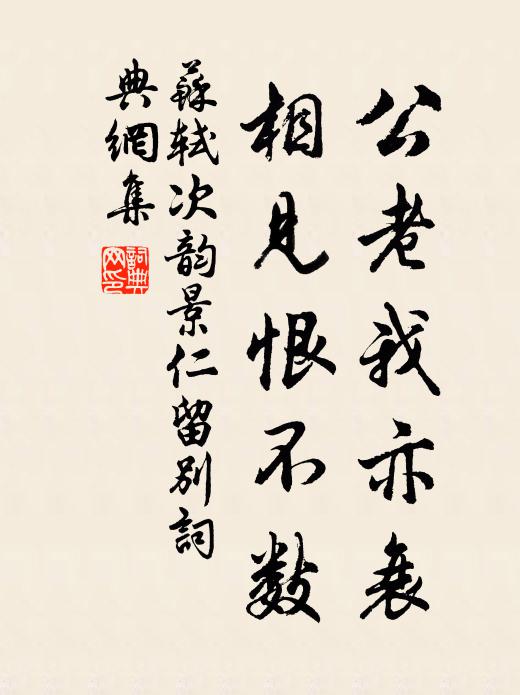 公老我亦衰
相見恨不数
蘇軾次韵景仁留别詞
典網集
詞典
网印